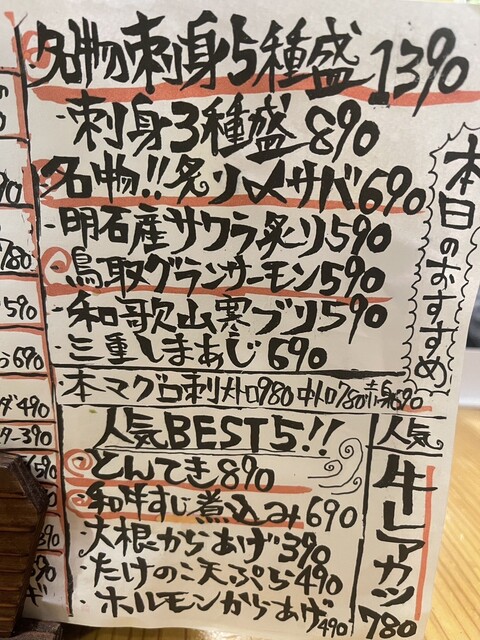 本日のおすすめ
名物刺身5種盛 1390
・刺身3種盛 890
名物!!炙りメサバ 690
・明石産サワラ炙り 590
鳥取グランサーモン 590
・和歌山寒ブリ 590
・三重しまあじ 690
・本マグロ刺 大トロ980 中トロ780 赤身690
人気BEST5!!
・とんてき 890
・和牛すじ煮込み 690
・大根からあげ 390
・たけのこ天ぷら 490
・ホルモンからあげ 490
人気
牛レアカツ
780
780
590
690
490
390